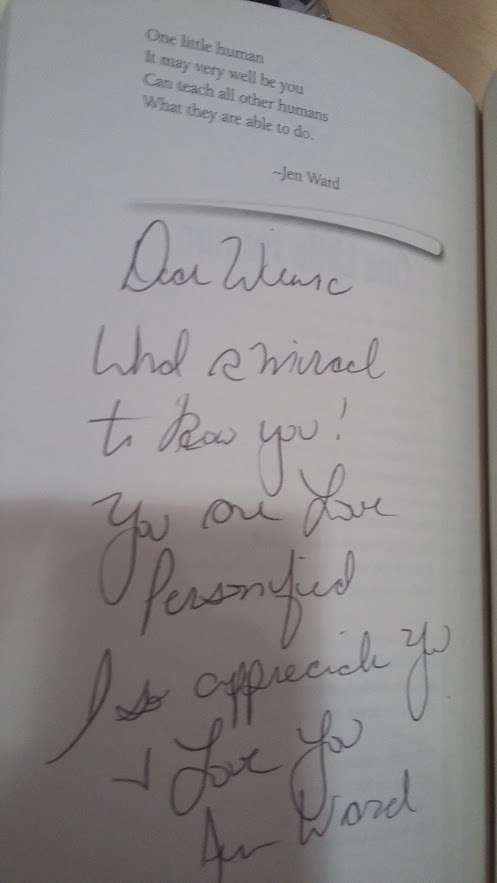 One little human
It may very well be you
Can teach all other humans
What they are able to do.
~Jen Ward
Dear
What a miracl
to know you!
You are Love
Personified
I so appreciate you
+ Love You
Jen Ward